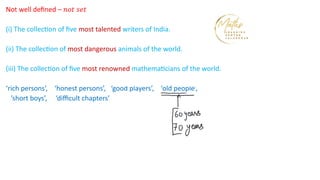 Not well defined – not set
(i) The collection of five most talented writers of India.
(ii) The collection of most dangerous animals of the world.
(iii) The collection of five most renowned mathematicians of the world.
'rich persons', 'honest persons', 'good players', 'old people',
'short boys', 'difficult chapters'
60 years
70 years